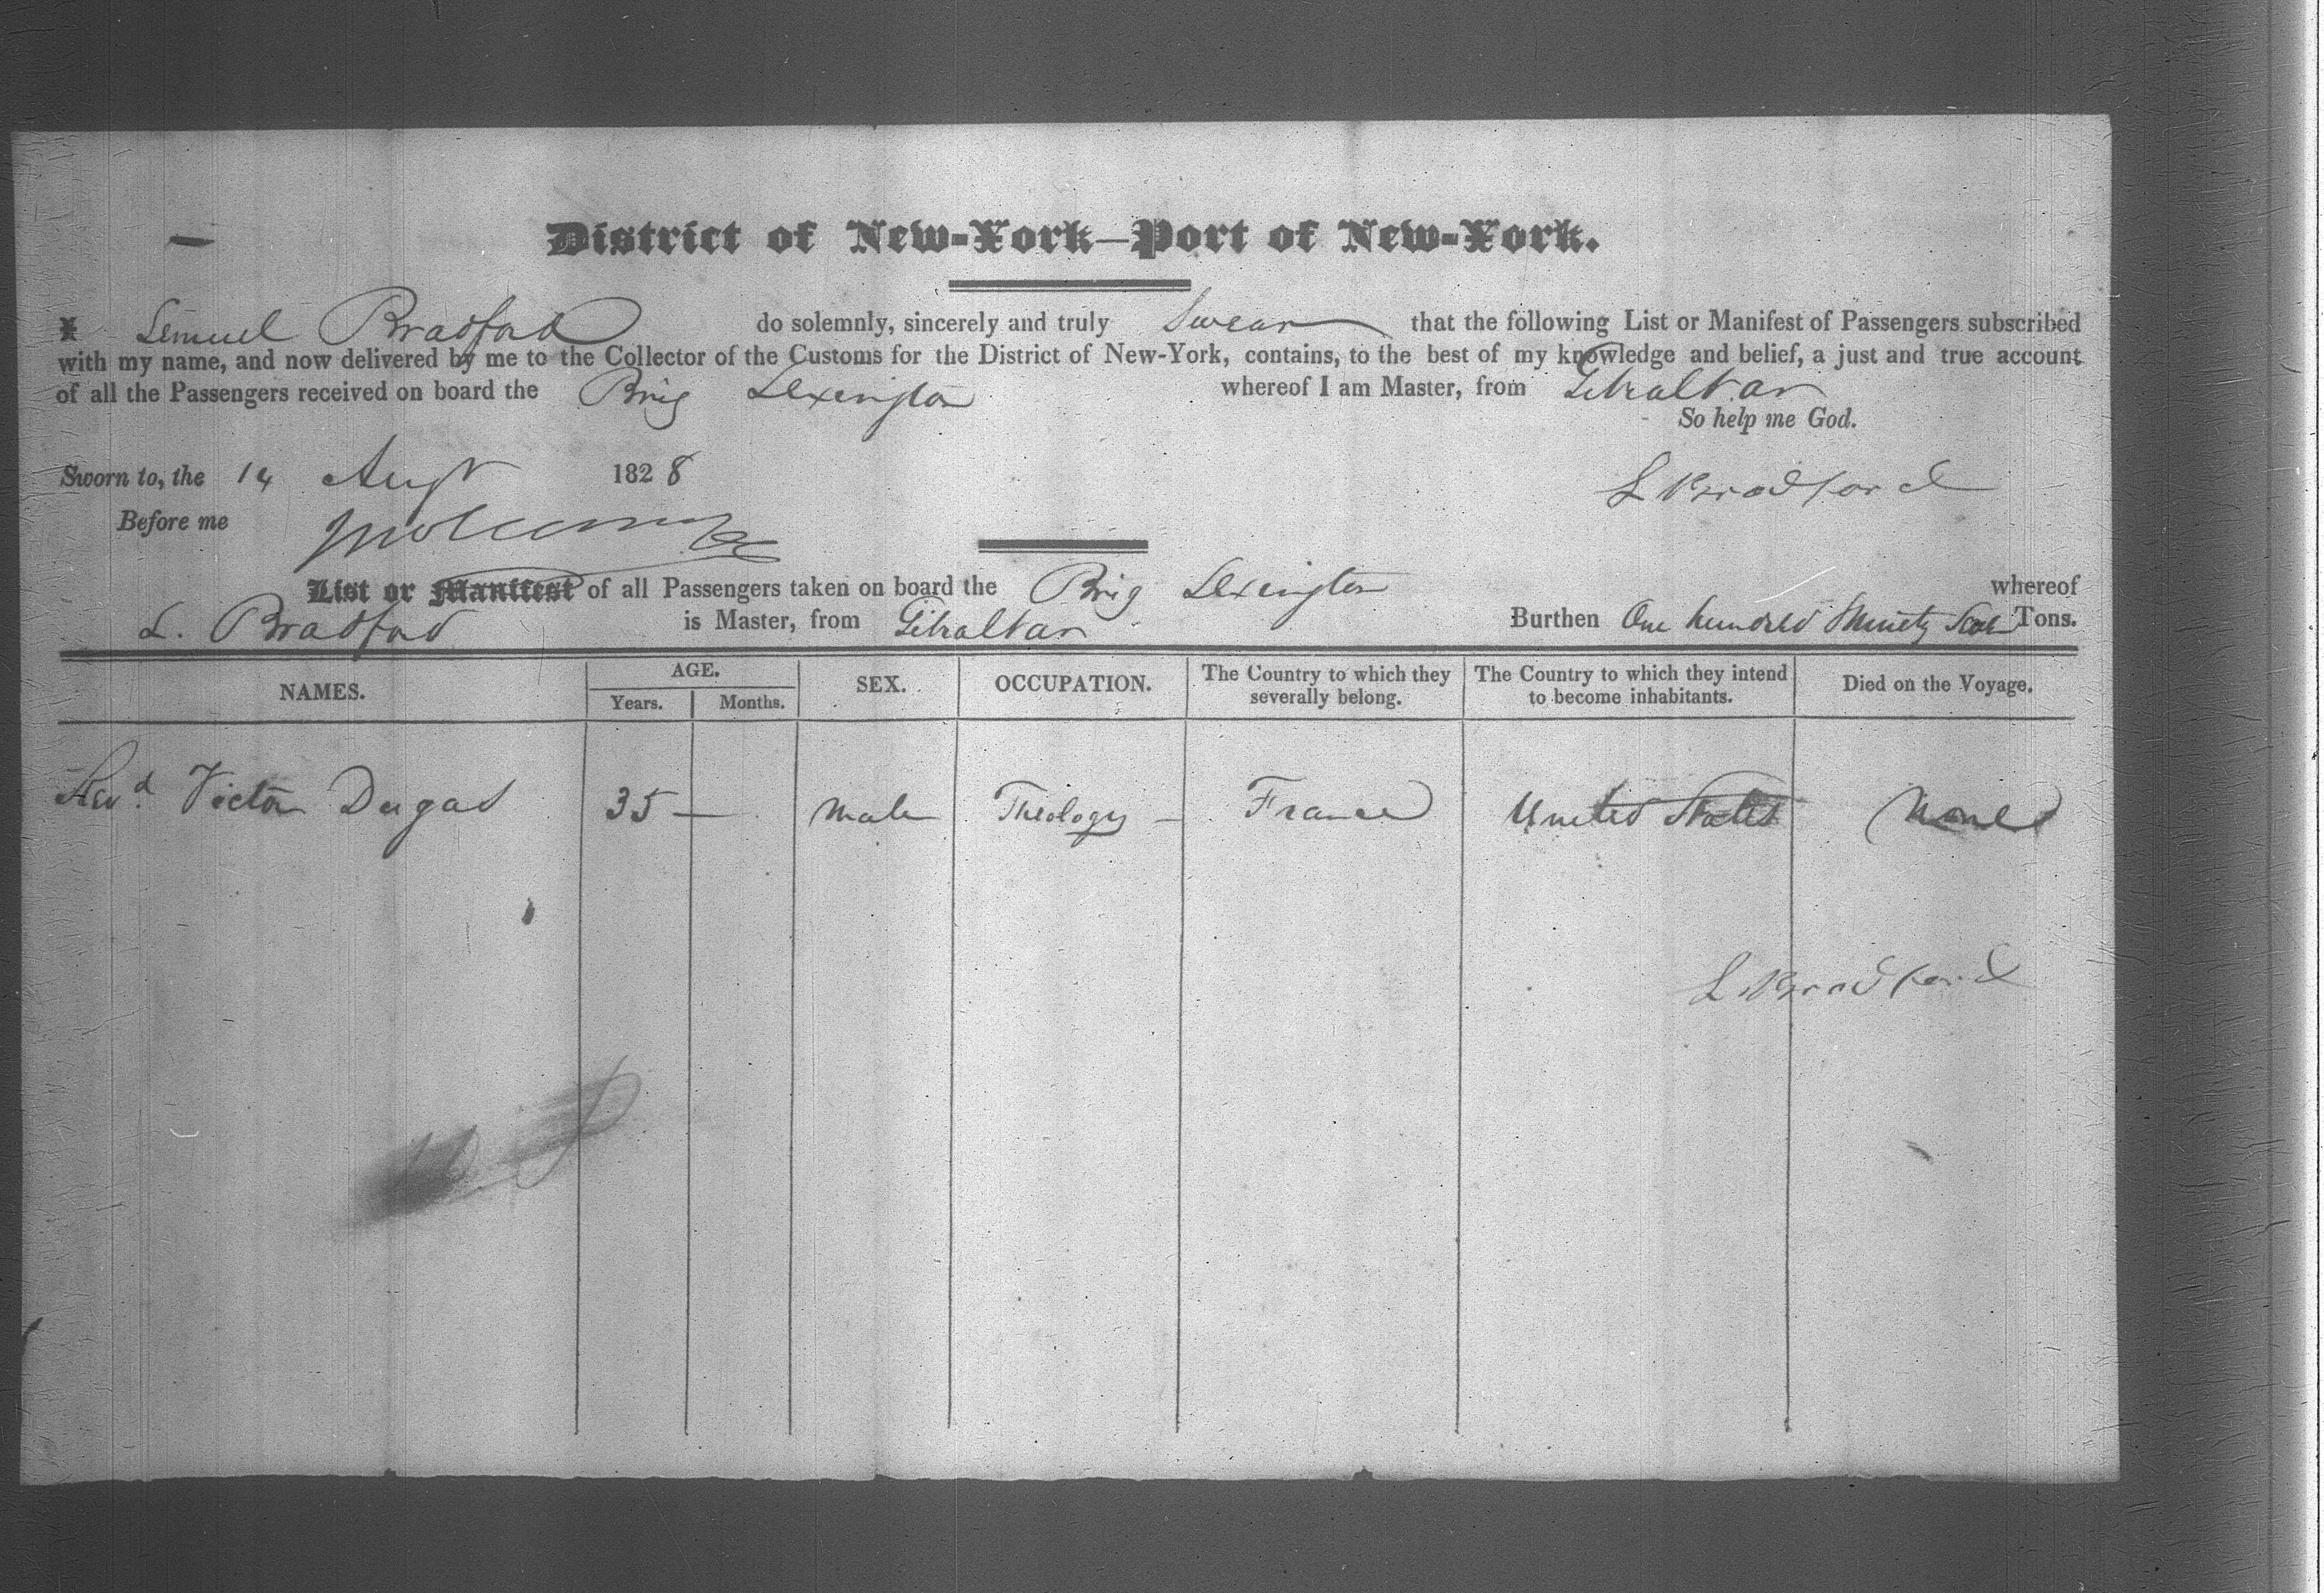 District of New-York—Port of New-York.
I Lemuel Bradford do solemnly, sincerely and truly Swear that the following List or Manifest of Passengers subscribed
with my name, and now delivered by me to the Collector of the Customs for the District of New-York, contains, to the best of my knowledge and belief, a just and true account
of all the Passengers received on board the Brig Lexington whereof I am Master, from Gibraltar
So help me God.
Sworn to, the 14 Augt 1828
L Bradford
Before me
List or Manifest of all Passengers taken on board the Brig Lexington whereof
L. Bradford is Master, from Gibraltar Burthen One hundred Ninety Tons.
NAMES. AGE. SEX. OCCUPATION. The Country to which they severally belong. The Country to which they intend to become inhabitants. Died on the Voyage.
Years. Months.
Revd. Victor Dugas 35 — Male Theology — France United States None
L Bradford